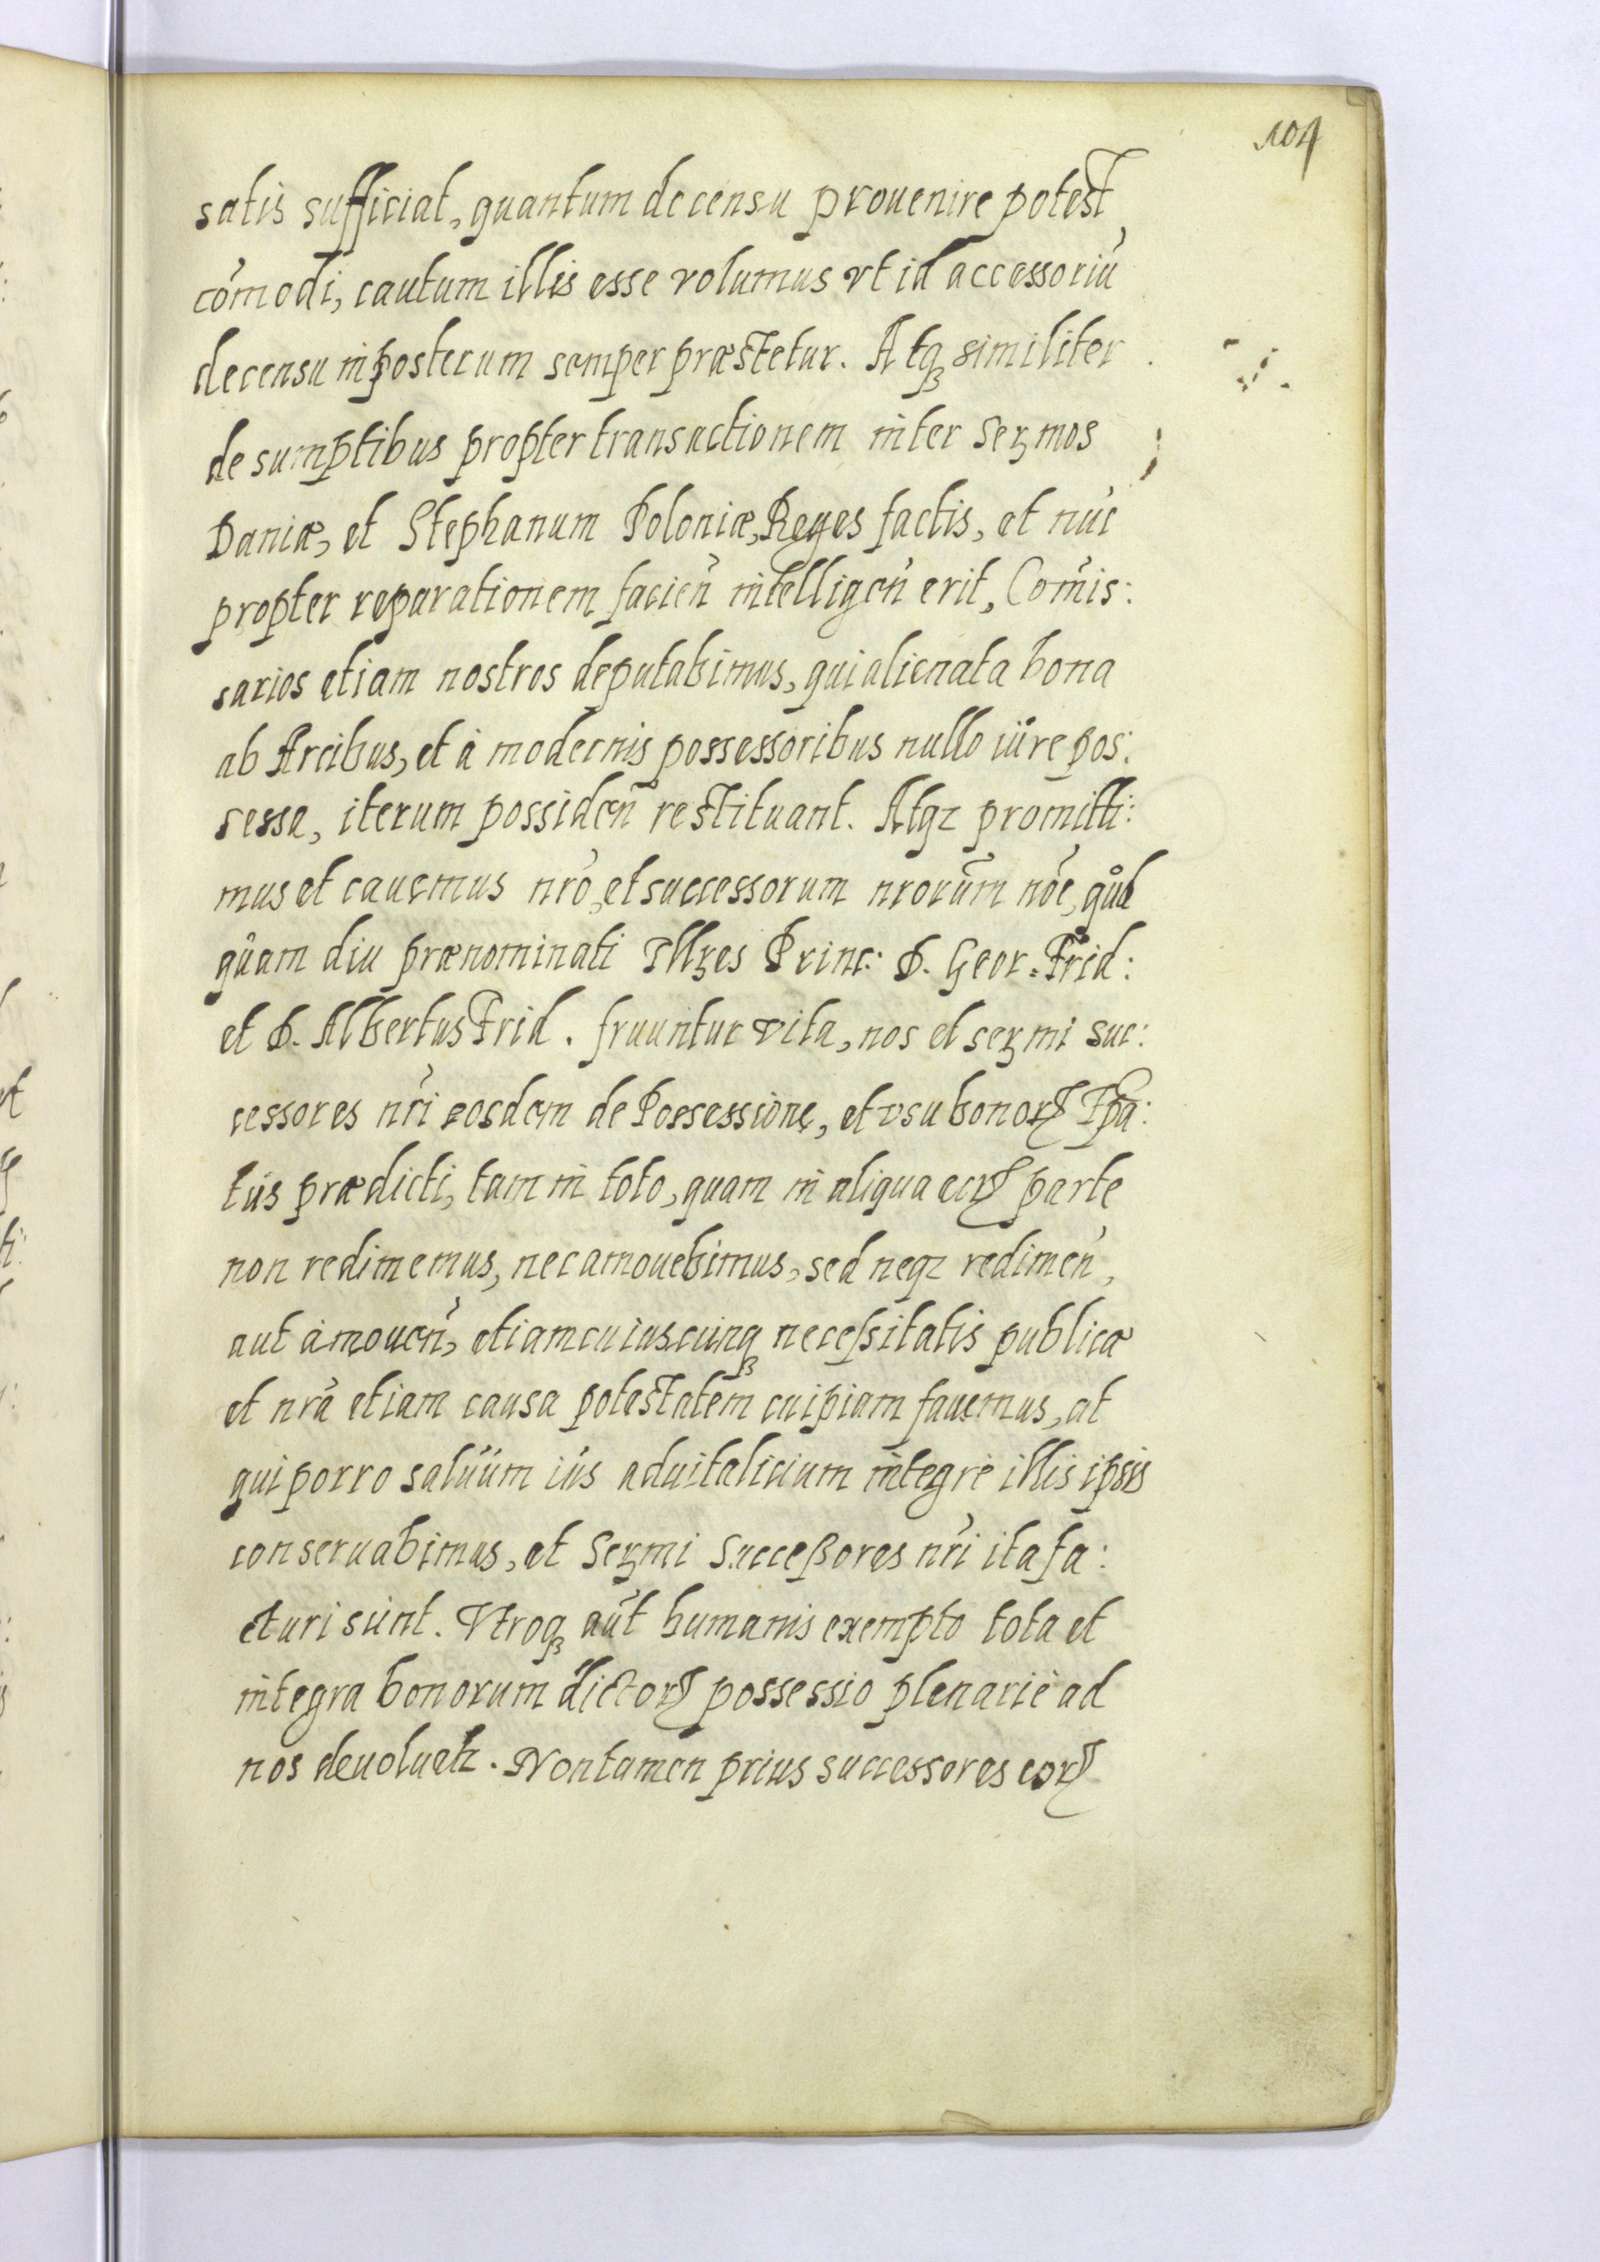 104
satis sufficiat, quantum de censu prouenire potest
cōmodi, cautum illis esse volumus vt id accessoriū
de censu in posterum semper præstetur. Atqꝫ similiter
de sumptibus propter transactionem inter Serꝫmos
Daniæ, et Stephanum Poloniæ, Reges factis, et nūc
propter reparationem facien̄ intelligen̄ erit, Com̄is:
sarios etiam nostros deputabimus, qui alienata bona
ab Arcibus, et à modernis possessoribus nullo iūre pos:
sessa, iterum possiden̄ restituant. Atqꝫ promitti:
mus et cauemus nrō, et successorum nrorūm nōe, qůd
qůam diu prænominati Illꝫes Princ: D. Geor: Frid:
et D. Albertus Frid. fruuntur vita, nos et serꝫmi suc:
cessores nr̄i eosdem de Possessione, et vsu bonorꝝ Ep̄a:
tūs prædicti, tam in toto, quam in aliqua eorꝝ parte
non redimemus, nec amouebimus, sed neqꝫ redimen̄,
aut àmouen̄, etiam cuiuscunqꝫ necessitatis publicæ
et nrā etiam causa potestatem cuipiam fauemus, at
qui porro salūum iūs aduitalicium integrè illis ipsis
conseruabimus, et Serꝫmi Successores nr̄i ita fa:
cturi sūnt. Vtroqꝫ aūt humanis exempto tota et
integra bonorum dictorꝝ possessio plenariè ad
nos deuoluetꝛ. Non tamen prius successores eorꝝ